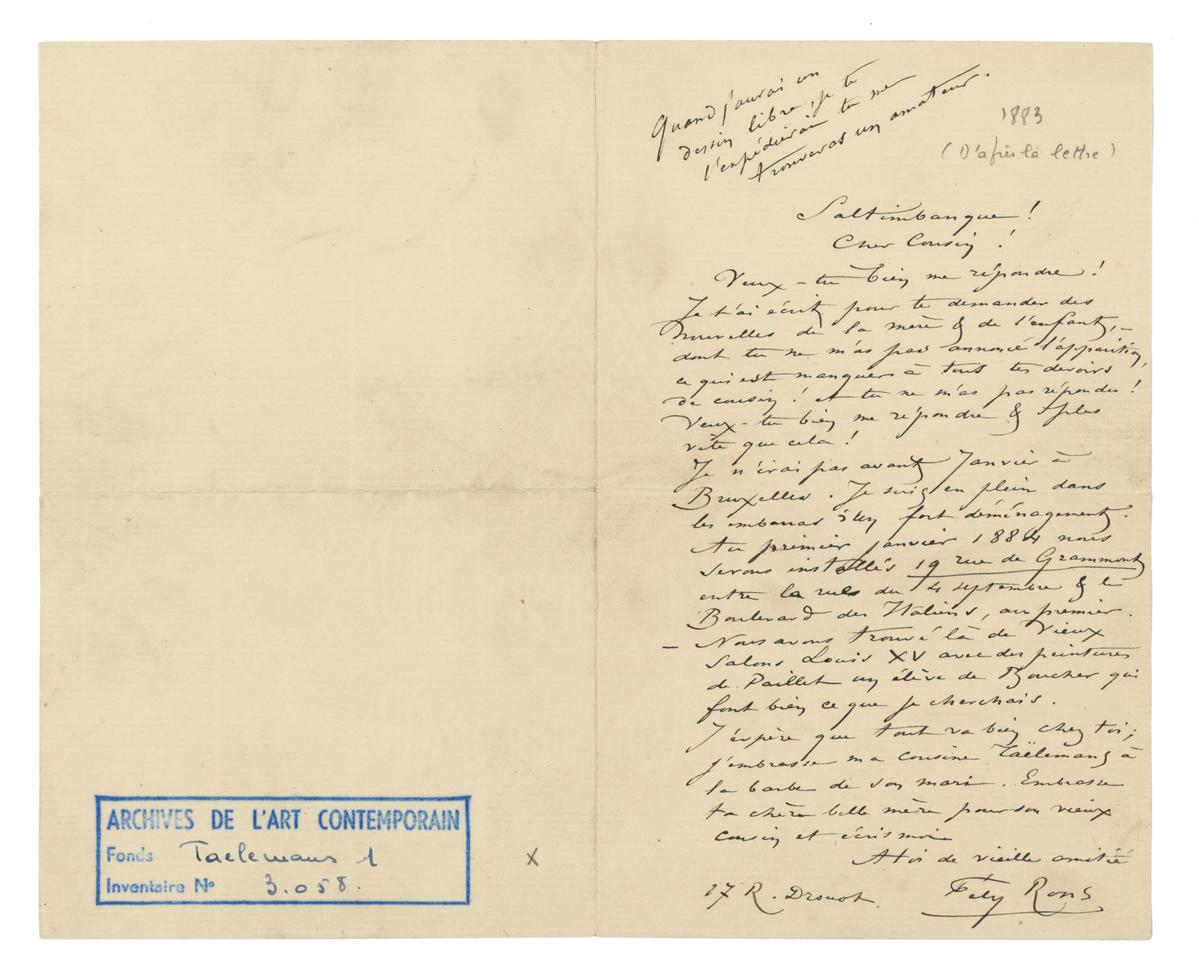 Quand j'aurai un
dessin libre, je te
l'expédierai tu me
trouveras un amateur.
1883
(D'après la lettre)
Saltimbanque !
Cher Cousin !
Veux-tu bien me répondre !
Je t'ai écrit pour te demander des
nouvelles de la mère & de l'enfant, –
dont tu ne m'as pas annoncé l'apparition,
ce qui est manquer à tous tes devoirs
de cousin ! et tu ne m'as pas répondu !
Veux-tu bien me répondre & plus
vite que cela !
Je n'irai pas avant Janvier à
Bruxelles. Je suis en plein dans
les embarras d'un fort déménagement.
Au premier janvier 1884 nous
serons installés 19 rue de Grammont
entre la rue du 4 septembre & le
Boulevard des Italiens, au premier.
– Nous avons trouvé là de vieux
Salons Louis XV avec des peintures
de Paillet un élève de Boucher qui
font bien ce que je cherchais.
J'éspère que tout va bien chez toi;
j'embrasse ma cousine Taëlemans à
la barbe de son mari. Embrasse
ta chère belle mère pour son vieux
cousin et écris moi
A toi de vieille amitié
17 R. Drouot.
Fély Rops
ARCHIVES DE L'ART CONTEMPORAIN
Fonds Taelemans 1
Inventaire N° 3.058.
X